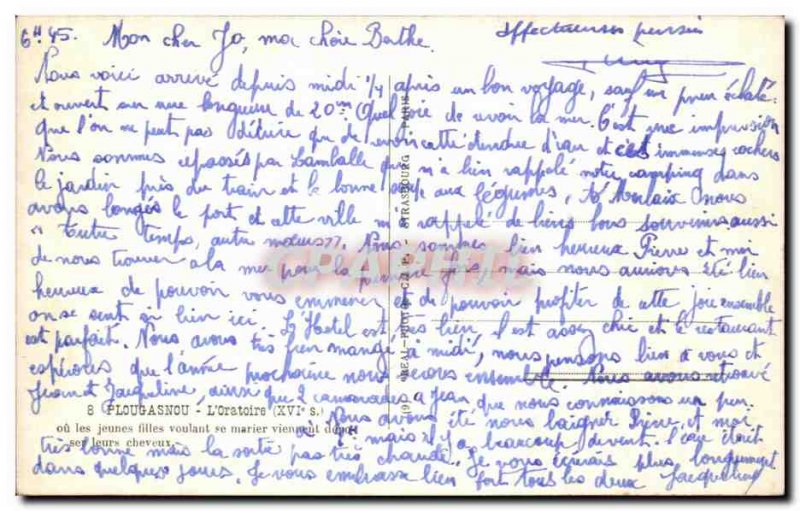 6H45. Mon cher Jo, ma chère Berthe.
Affectueuses pensées
Nous voici arrivé depuis midi 1/4 après un bon voyage, sauf un pneu éclaté
et ouvert sur une longueur de 20cm. Quelle joie de revoir la mer. C'est une impression
que l'on ne peut pas décrire que de revoir cette étendue d'eau et ces immenses rochers
Nous sommes repassés par Lamballe qui m'a bien rappelé notre camping dans
le jardin près du train et la bonne soupe aux légumes, A Morlaix nous
avons longés le port et cette ville m'a rappelé de biens bons souvenirs aussi
"autre temps, autre moeurs". Nous sommes bien heureux Pierre et moi
de nous trouver à la mer pour la première fois, mais nous aurions été bien
heureux de pouvoir vous emmener et de pouvoir profiter de cette joie ensemble
on se sent si bien ici. L'Hotel est très bien, il est assez chic et le restaurant
est parfait. Nous avons très bien mangé à midi, nous pensons bien à vous et
espérons que l'année prochaine nous serons ensemble. Nous avons retrouvé
Jean et Jacqueline, ainsi que 2 camarades à Jean que nous connaissons un peu.
8 PLOUGASNOU - L'Oratoire (XVIe s.)
où les jeunes filles voulant se marier viennent déposer
ses leurs cheveux.
Nous avons été nous baigner Pierre et moi
mais il y a beaucoup de vent. l'eau était
très bonne mais la sortie pas très chaude. Je vous écrirais plus longuement
dans quelques jours. Je vous embrasse bien fort tous les deux Jacqueline
STRASBOURG PARIS
CPAPHIL